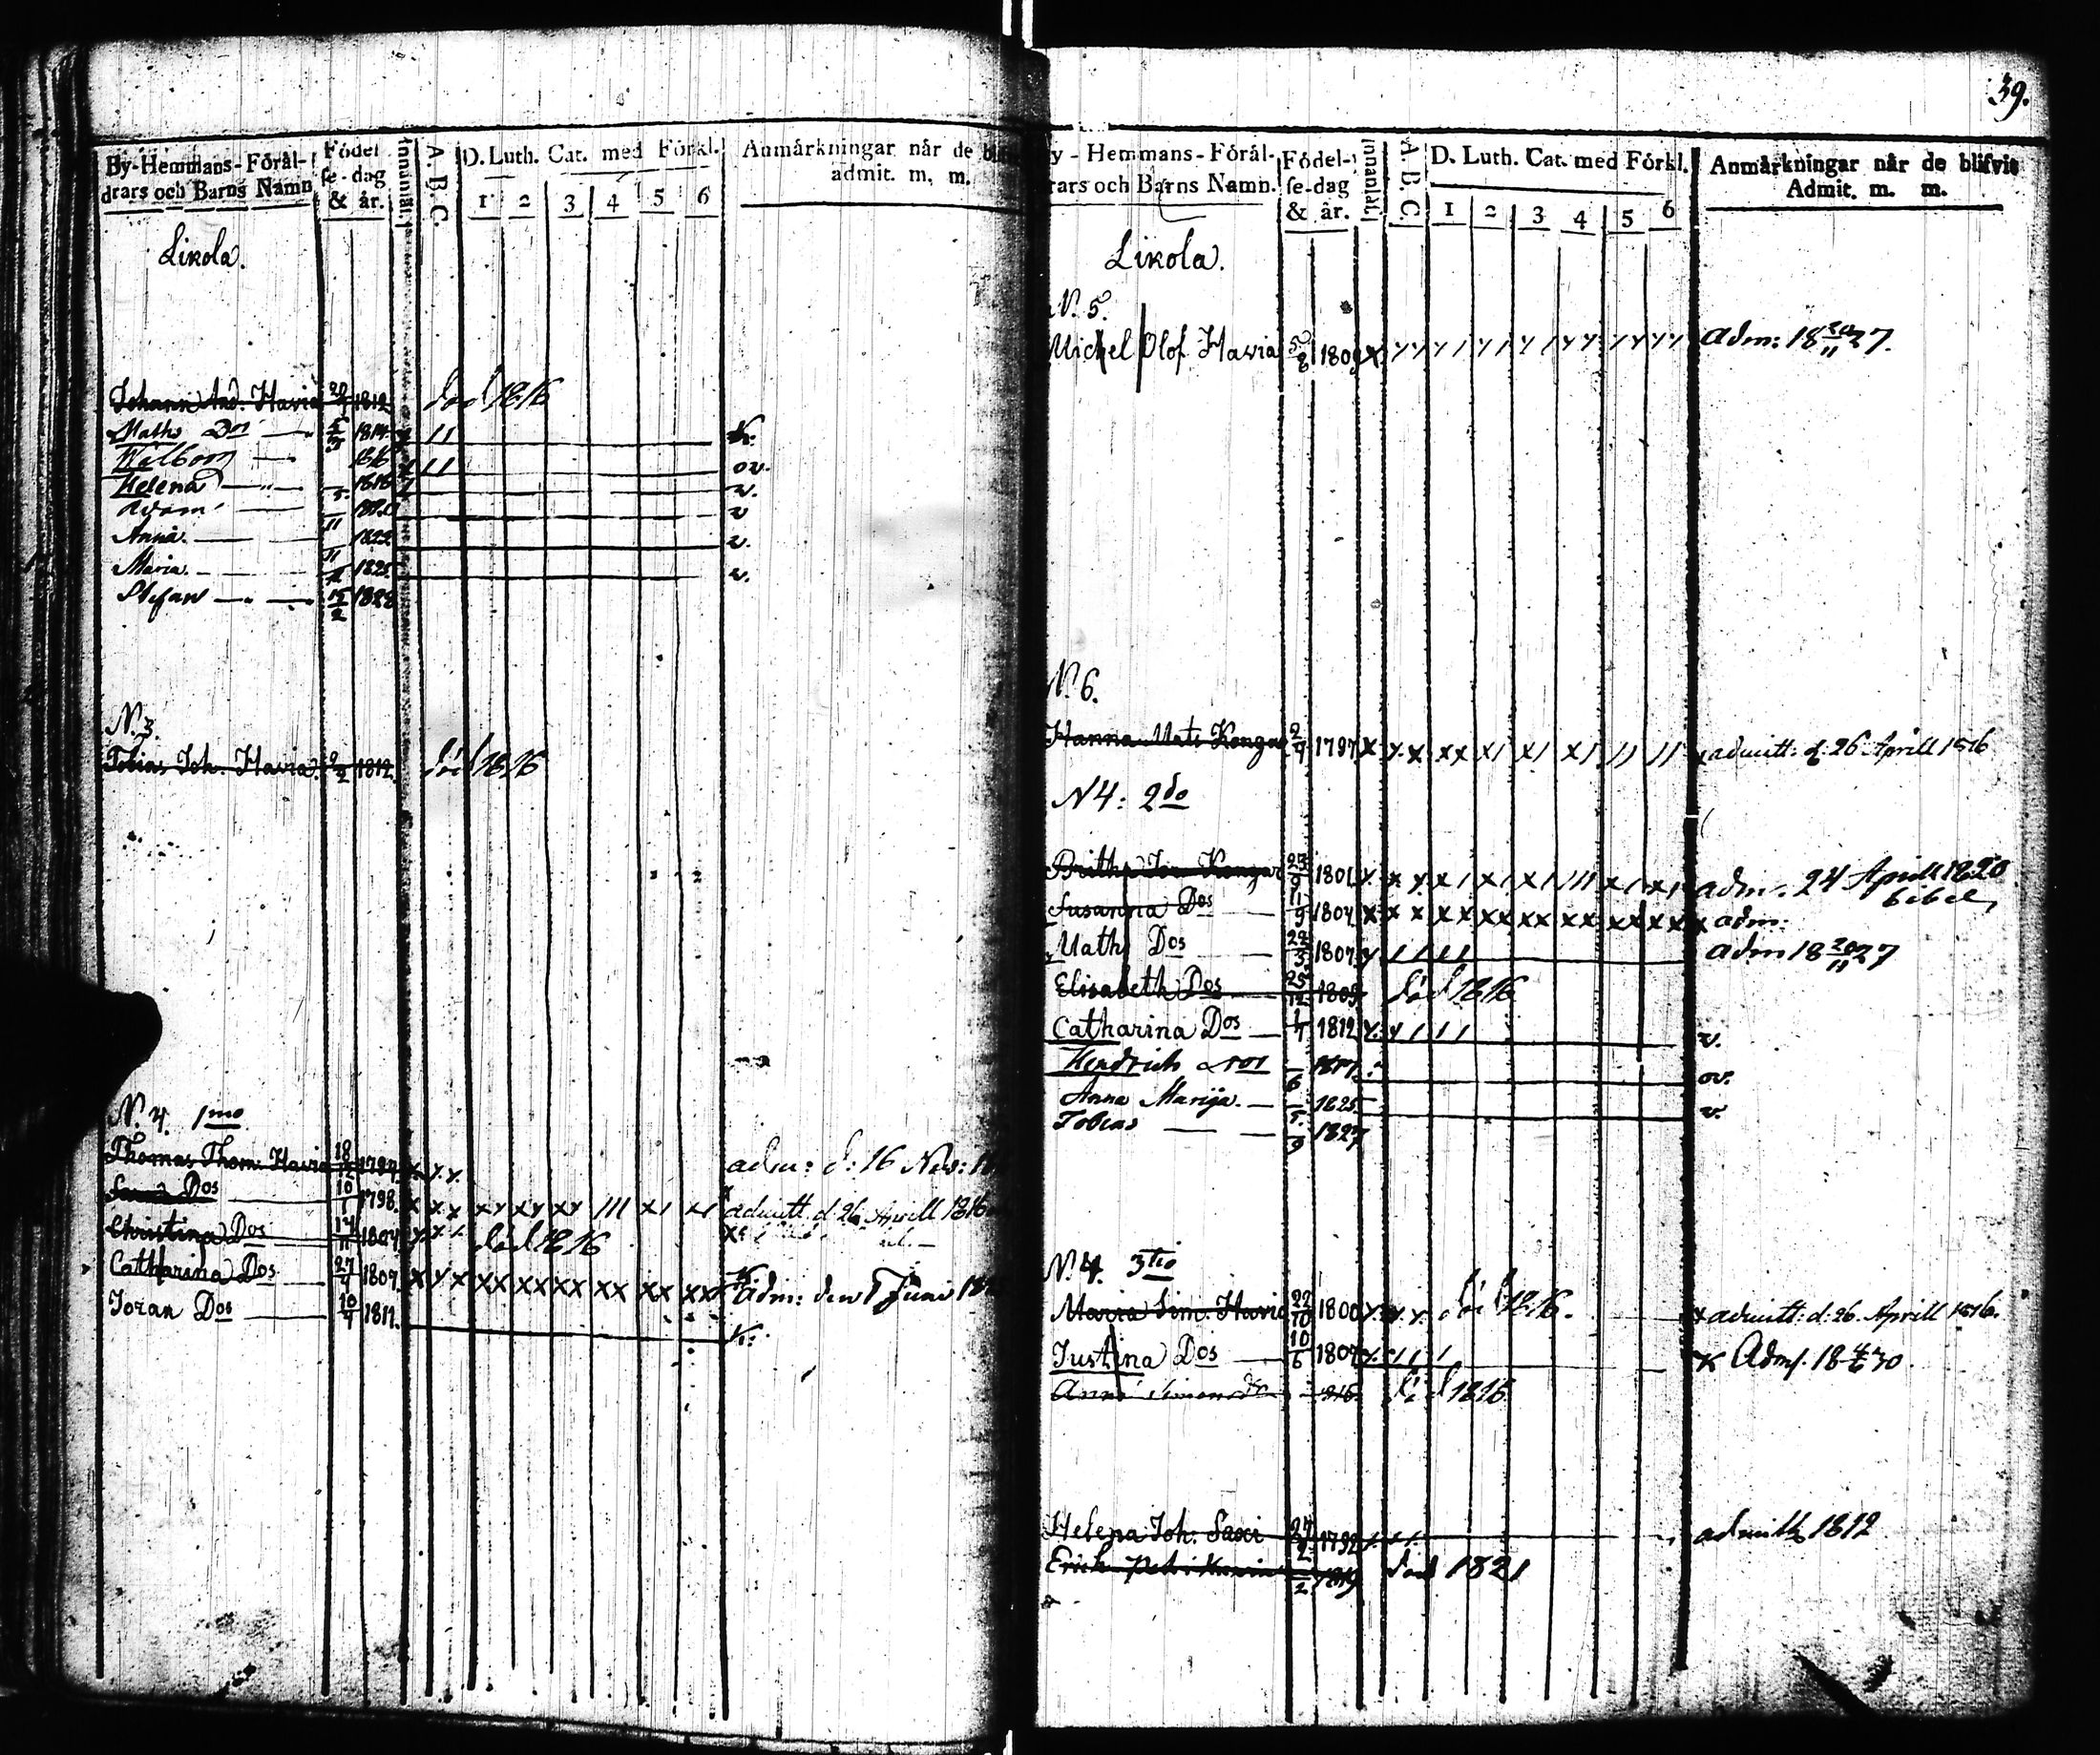 By-Hemmans-Föräl-
drars och Barns Namn
Födel
se-dag
& år.
Innanläs.
A. B. C.
D. Luth. Cat. med Förkl.
1 2 3 4 5 6
Anmärkningar når de
admit. m. m.
Likola.
Johann And. Havia 1812 död 1816
Maths Dos 5/3 1814 x 11
Walborg 1816 x 11 ov.
Helena 1818 v.
Adam v
Anna 11 1822 v.
Maria 1825 v.
Stefan 15/2 1828
N. 3.
Tobias Joh. Havia 2/2 1812. död 1816
N. 4. 1mo
Thomas Thom. Havia 18/12 1794 adm: d: 16 Nov:
Dos 10/1 1798. admitt. d 26 Aprill 1816
Christina Dos 14/11 1804 död 1816
Catharina Dos 27/4 1807. x y x xx xx xx xx xx xx adm: den 1 Juni
Joran Dos 10/4 1811.
39.
y-Hemmans-Förål-
rars och Barns Namn.
Födel-
se-dag
& år.
Innanläs.
A. B. C
D. Luth. Cat. med Förkl.
1 2 3 4 5 6
Anmärkningar når de blifvit
Admit. m. m.
Likola.
N. 5.
Michel Olof Havia 5/8 1809 adm: 18 20/11 27.
N. 6.
Hanna Mats Kongas 2/4 1797 x y x xx x1 x1 x1 11 11 admitt: d. 26 Aprill 1816
N 4: 2do
Britha Jon Kongas 23/9 1801 adm. 24 Aprill 1820
bibel
Susanna Dos 11/9 1804 x x x xx xx xx xx xx xx x adm:
Maths Dos 22/3 1807 y 1 1 1 1 adm 18 20/11 27
Elisabeth Dos 25/12 1809 död 1816
Catharina Dos 1/4 1812 y. y 1 1 1 v.
Hendrich Dos 6 1817 ov.
Anna Marija. 5. 1825 v.
Tobias 9 1827
N. 4. 3tio
Maria Sim. Havia 22/10 1800 död 1816. x admitt: d: 26. Aprill 1816.
Justina Dos 10/6 1807 x Adm. 18 4/6 30
Anna Simon 1816 död 1816
Helena Joh. Saxi 24/2 1792 admitt 1812
Erich Petri 2 1819 död 1821